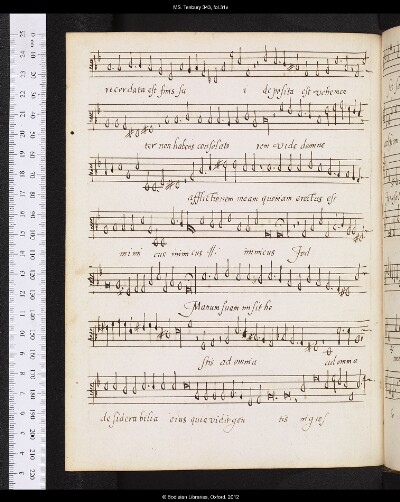 MS. Tenbury 340, fol.31v
recordata est finis su i deposita est vehemen
ter non habens consolato rem vide domine
afflictionem meam quoniam erectus est
inimi cus inimicus ſſ. inimicus Jod
Manum suam misit ho
stis ad omnia ad omnia
desiderabilia eius quia vidit gen tis ingres
© Bodleian Libraries, Oxford, 2012